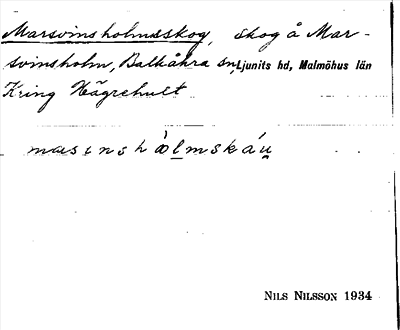 Marsvinsholmsskog, skog å Mar-
svinsholm, Balkåkra sn, Ljunits hd, Malmöhus län
Kring Hägrehult
NILS NILSSON 1934